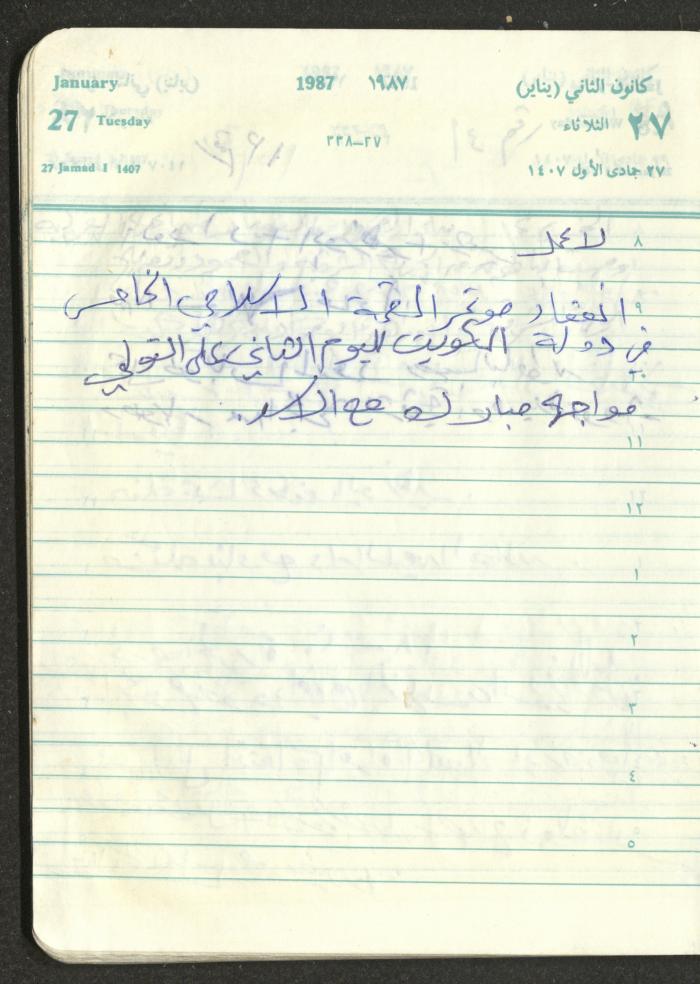 January 1987 ١٩٨٧ كانون الثاني (يناير)
27 Tuesday ٢٧ الثلاثاء
٢٧-٣٣٨
27 Jamad I 1407 ٢٧ جمادى الأول ١٤٠٧
٨ لا عمل
٩ انعقاد مؤتمر القمة الاسلامي الخامس
في دولة الكويت لليوم الثاني على التوالي
١٠
مواجهة مبارك مع الاسد.
١١
١٢
١
٢
٣
٤
٥